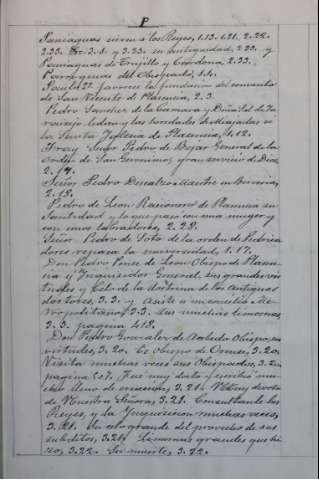 P
Paniaguas sirven a los Reyes, 1.13. 1.21. 2.22.
2.33. 3.8. y 3.33. su antiguedad, 2.33. y
Paniaguas de Trujillo y Cordona. 2.33.
Parroquias del Obispado, 1.1.
Paulo 2º favorece la fundacion del convento
de San Vicente de Plasencia, 2.3.
Pedro Sanchez de la Camara y Doña Sol de
la heredades de Miajadas si
la Santa Iglesia de Plasencia, 1.12.
Fray Señor Pedro de Bejar General de la
orden de San Geronimo, gran siervo de Dios
2.14.
Señor Pedro Maestro en
2.18.
Pedro de Leon Racionero de Plasencia su
Santidad y lo que paso con una muger y
con unos labradores, 2.28.
Señor Pedro de Soto de la orden de
dores repara la universidad, 1.17.
Don Pedro Ponce de Leon Obispo de Plasen-
cia y Inquisidor General, sus grandes vir-
tudes y de la doctrina de los antiguos
doctores, 3.3. y Asiste a un concilio Me-
tropolitano, 3.3. sus muchas limosnas
3.3. pagina 418.
Don Pedro Gonzalez de Acebedo Obispo, sus
virtudes, 3.20. Es Obispo de Osma, 3.20.
Visita muchas veces sus Obispados, 3.2
pagina Fue muy docto y mu-
cho lleno de oracion, 3.21. Muy devoto
de Nuestra Señora, 3.21. Consultanle los
Reyes, y la Ynquisicion muchas veces,
3.21. Su celo grande del provecho de sus
subditos, 3.21. Limosnas grandes que hi-
zo, 3.22. Su muerte, 3.22.